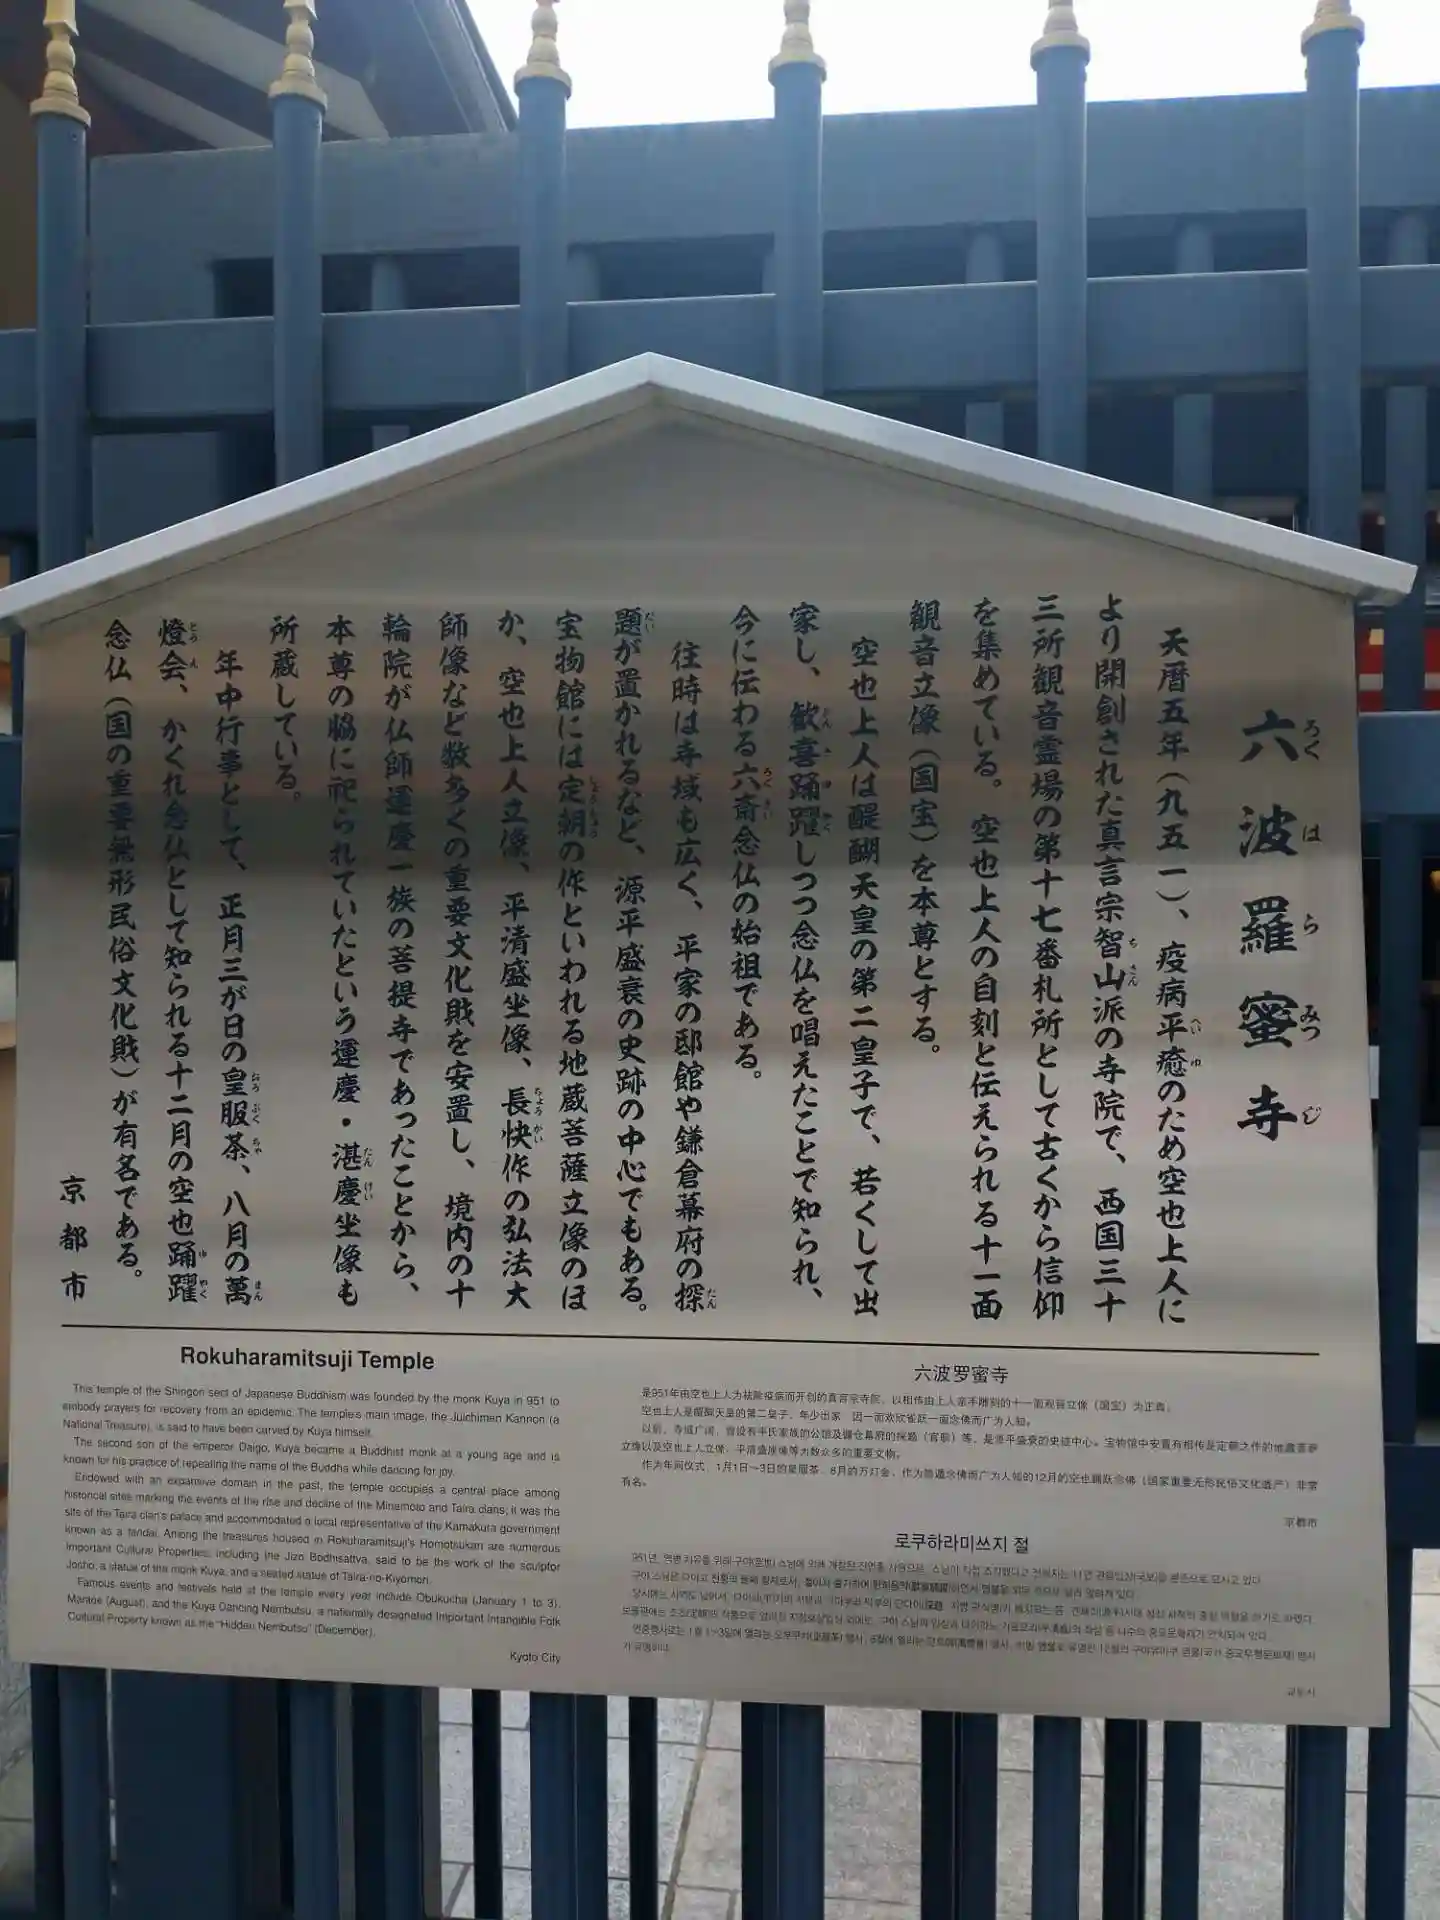 六波羅蜜寺
ろく は ら みつ じ
天暦五年（九五一）、疫病平癒のため空也上人に
より開創された真言宗智山派の寺院で、西国三十
三所観音霊場の第十七番札所として古くから信仰
を集めている。空也上人の自刻と伝えられる十一面
観音立像（国宝）を本尊とする。
空也上人は醍醐天皇の第二皇子で、若くして出
家し、歓喜踊躍しつつ念仏を唱えたことで知られ、
今に伝わる六斎念仏の始祖である。
往時は寺域も広く、平家の邸館や鎌倉幕府の探
題が置かれるなど、源平盛衰の史跡の中心でもある。
宝物館には定朝の作といわれる地蔵菩薩立像のほ
か、空也上人立像、平清盛坐像、長快作の弘法大
師像など数多くの重要文化財を安置し、境内の十
輪院が仏師運慶一族の菩提寺であったことから、
本尊の脇に祀られていたという運慶・湛慶坐像も
所蔵している。
年中行事として、正月三が日の皇服茶、八月の萬
燈会、かくれ念仏として知られる十二月の空也踊躍
念仏（国の重要無形民俗文化財）が有名である。
京都市
Rokuharamitsuji Temple
This temple of the Shingon sect of Japanese Buddhism was founded by the monk Kuya in 951 to
embody prayers for recovery from an epidemic. The temple's main image, the Juichimen Kannon (a
National Treasure), is said to have been carved by Kuya himself.
The second son of the emperor Daigo, Kuya became a Buddhist monk at a young age and is
known for his practice of repeating the name of the Buddha while dancing for joy.
Endowed with an expansive domain in the past, the temple occupies a central place among
historical sites marking the events of the rise and decline of the Minamoto and Taira clans; it was the
site of the Taira clan's palace and accommodated a local representative of the Kamakura government
known as a tandai. Among the treasures housed in Rokuharamitsuji's Homotsukan are numerous
Important Cultural Properties, including the Jizo Bodhisattva, said to be the work of the sculptor
Jocho, a statue of the monk Kuya, and a seated statue of Taira-no-Kiyomori.
Famous events and festivals held at the temple every year include Obukucha (January 1 to 3),
Mantoe (August), and the Kuya Dancing Nembutsu, a nationally designated Important Intangible Folk
Cultural Property known as the "Hidden Nembutsu" (December).
Kyoto City
六波罗蜜寺
是951年由空也上人为祛除疫病而开创的真言宗寺院，以相传由上人亲手雕刻的十一面观音立像（国宝）为正尊。
空也上人是醍醐天皇的第二皇子，年少出家，因一面欢欣雀跃一面念佛而广为人知。
以前，寺域广阔，曾设有平氏家族的公馆及镰仓幕府的探题（官职）等，是源平盛衰的史迹中心。宝物馆中安置有相传是定朝之作的地藏菩萨
立像以及空也上人立像，平清盛坐像等为数众多的重要文物。
作为年间仪式，1月1日～3日的皇服茶，8月的万灯会，作为隐遁念佛而广为人知的12月的空也踊跃念佛（国家重要无形民俗文化遗产）非常
有名。
京都市
로쿠하라미쓰지 절
교토시